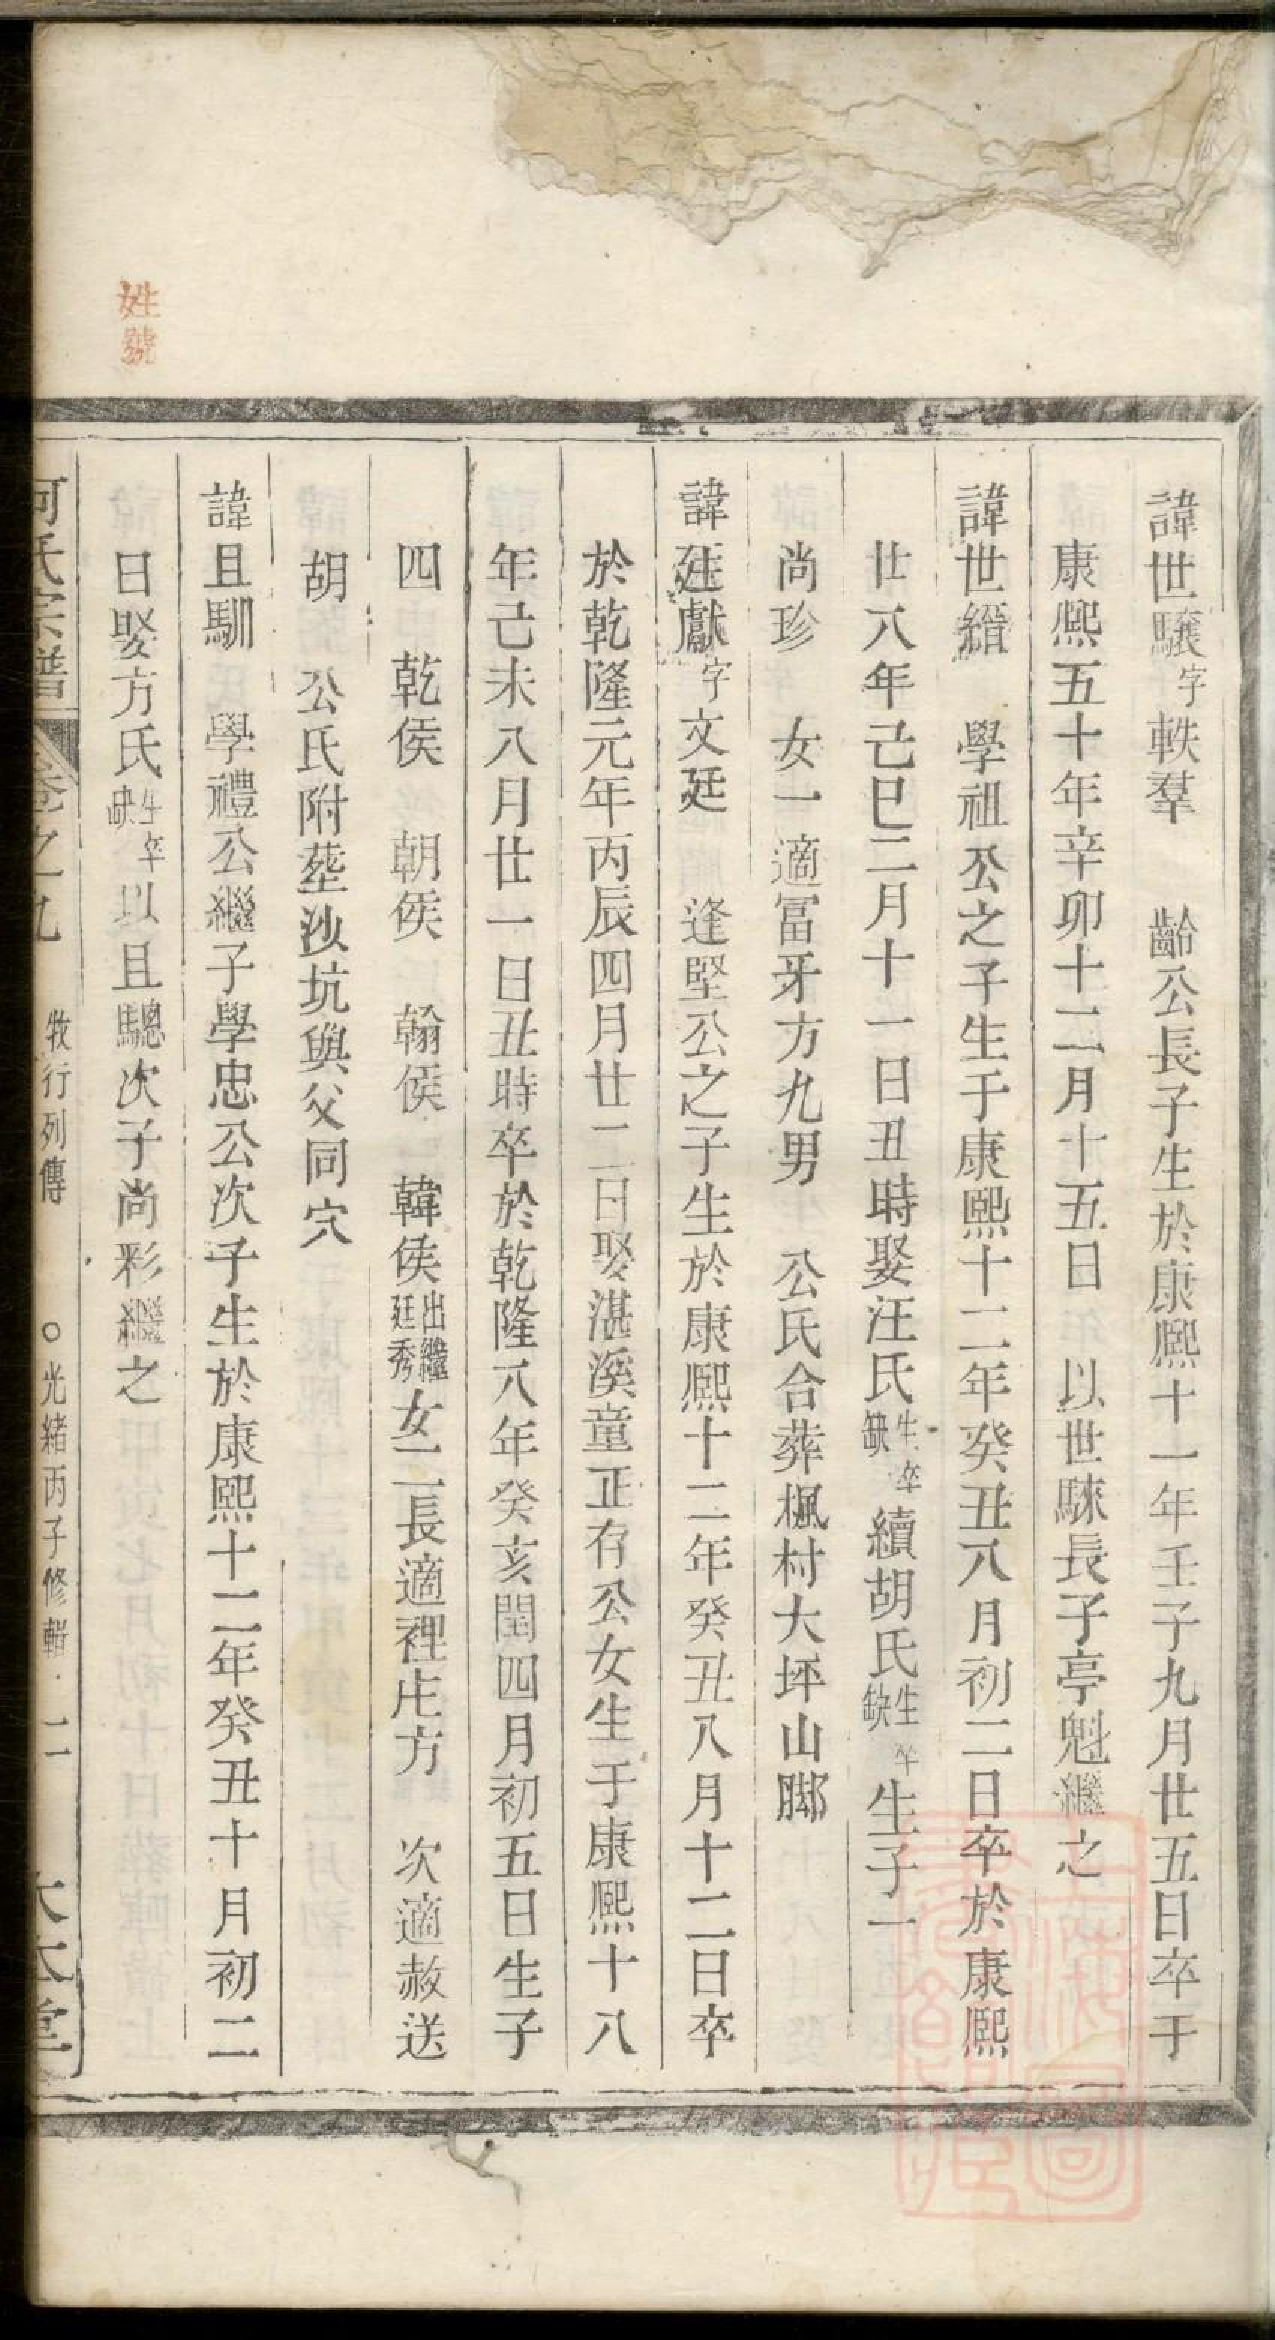 諱世驤字軼羣 齡公長子生於康熙十一年壬子九月廿五日卒于
康熙五十年辛卯十二月十五日 以世騋長子亭魁繼之
諱世縉 學祖公之子生于康熙十二年癸丑八月初二日卒於康熙
廿八年己巳二月十一日丑時娶汪氏生卒缺續胡氏生卒缺生子一
尚珍 女一適冨牙方九男 公氏合葬楓村大坪山脚
諱廷獻字文廷 逢堅公之子生於康熙十二年癸丑八月十二日卒
於乾隆元年丙辰四月廿二日娶湛溪童正存公女生于康熙十八
年己未八月廿一日丑時卒於乾隆八年癸亥閏四月初五日生子
四 乾侯 朝侯 翰侯 韓侯出繼廷秀女二長適裡庄方 次適赦送
胡 公氏附塟沙坑與父同穴
諱且馴 學禮公繼子學忠公次子生於康熙十二年癸丑十月初二
日娶方氏生卒缺以且驄次子尚彩繼之
何氏宗譜 卷之九 牧行列傳 ○光緒丙子修輯 二 大本堂
姓號
上海圖書館藏